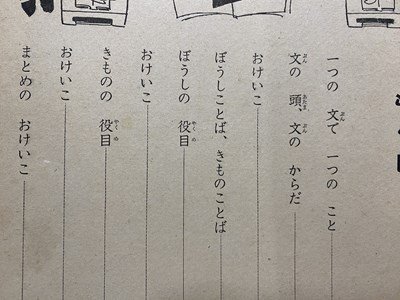 一つの 文で 一つの こと
文の 頭、文の からだ
おけいこ
ぼうしことば、きものことば
ぼうしの 役目
おけいこ
きものの 役目
おけいこ
まとめの おけいこ